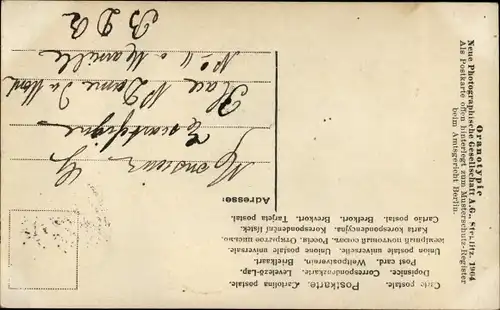 Postkarte.
Carte postale. Cartolina postale.
Dopisnice. Correspondenzkarte. Levelező-Lap.
Post card. Weltpostverein. Briefkaart.
Union postale universelle. Unione postale universale.
Karta korespondencyjna. Korespondenční lístek.
Cartão postal. Brefkort. Brevkort. Tarjeta postal.
Adresse:
Monsieur
Place N Dame du Mont
No 4 à Marseille
B D R
Oranotypie
Neue Photographische Gesellschaft A.G., Steglitz. 1904
Als Postkarte offen hinterlegt zum Musterschutz-Register
beim Amtsgericht Berlin.